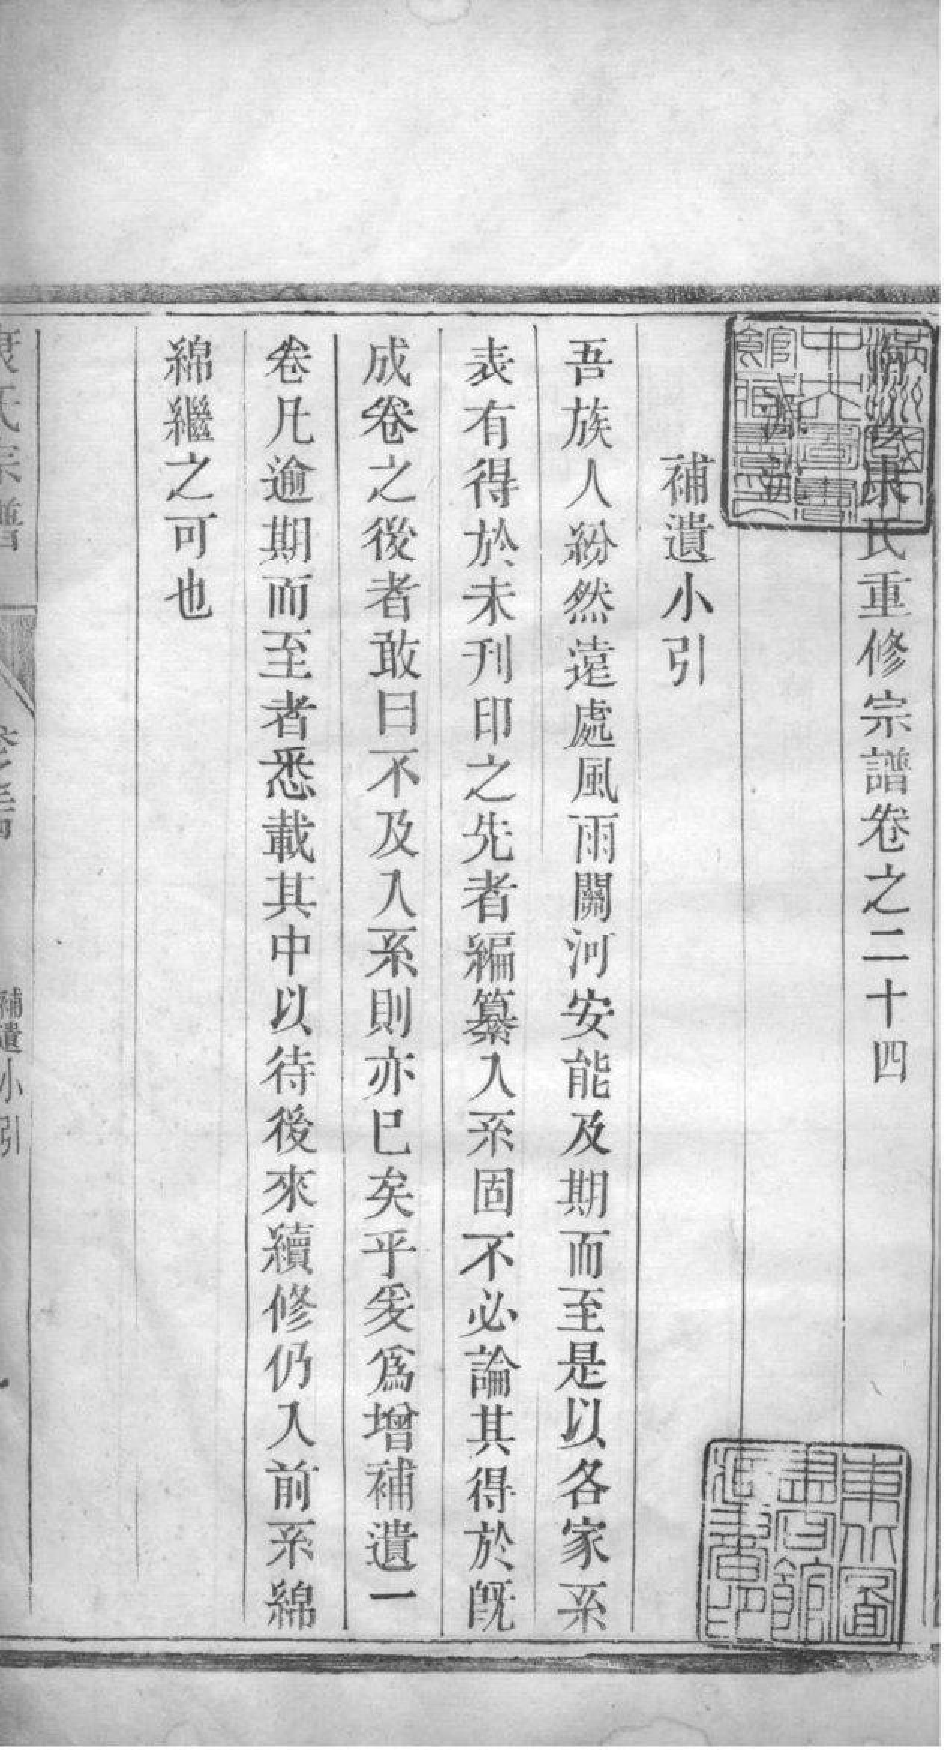 康氏重修宗譜卷之二十四
補遺小引
吾族人紛然遠處風雨關河安能及期而至是以各家系
表有得於未刊印之先者編纂入系固不必論其得於既
成卷之後者敢曰不及入系則亦已矣乎爰爲增補遺一
卷凡逾期而至者悉載其中以待後來續修仍入前系綿
綿繼之可也
康氏宗譜
卷之二十四
補遺小引